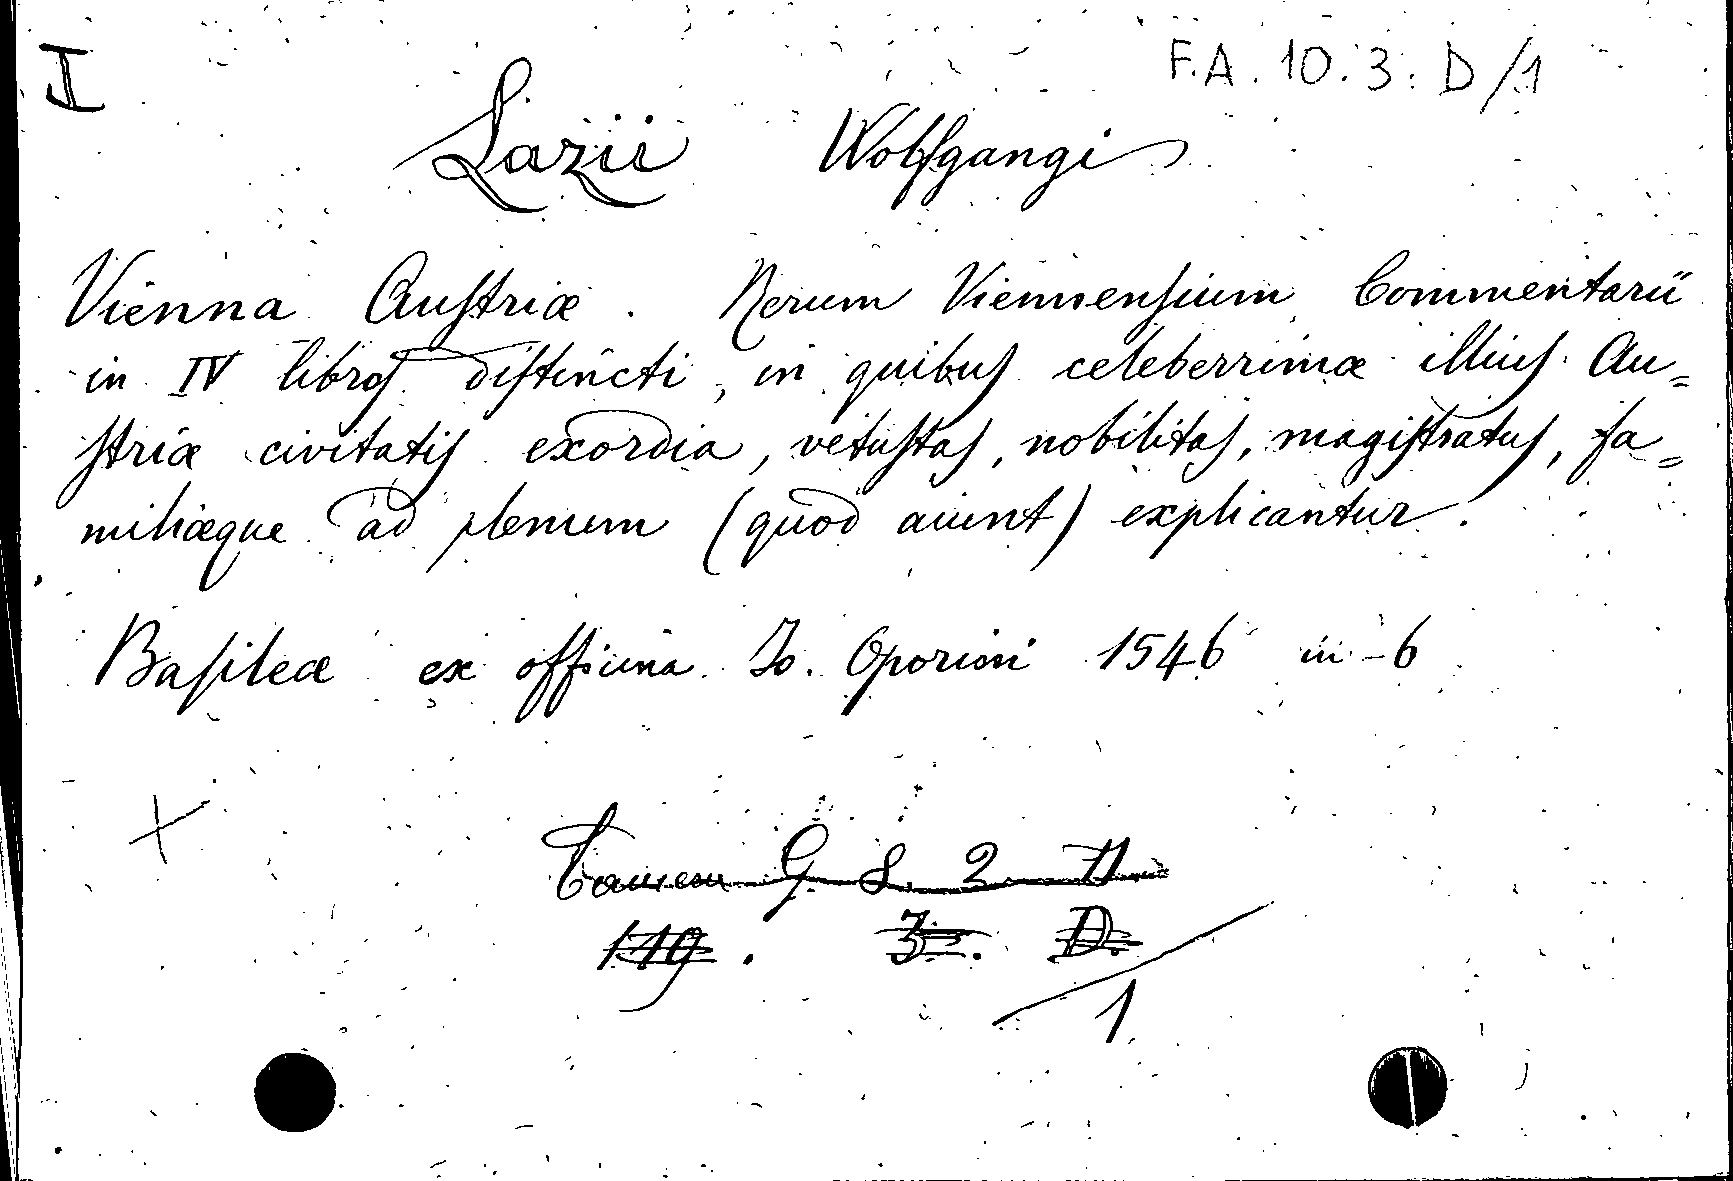 I
F.A. 10.3. D/1
Lazii Wolfgangi
Vienna Austriæ. Rerum Viennensium Commentarii
in IV libros distincti, in quibus celeberrimæ illius Au=
striæ civitatis exordia, vetustas, nobilitas, magistratus, fa=
miliæque ad plenum (quod aiunt) explicantur.
Basileæ ex officina Jo. Oporini 1546 in-6
G. S. 2
119. 3. D.
1